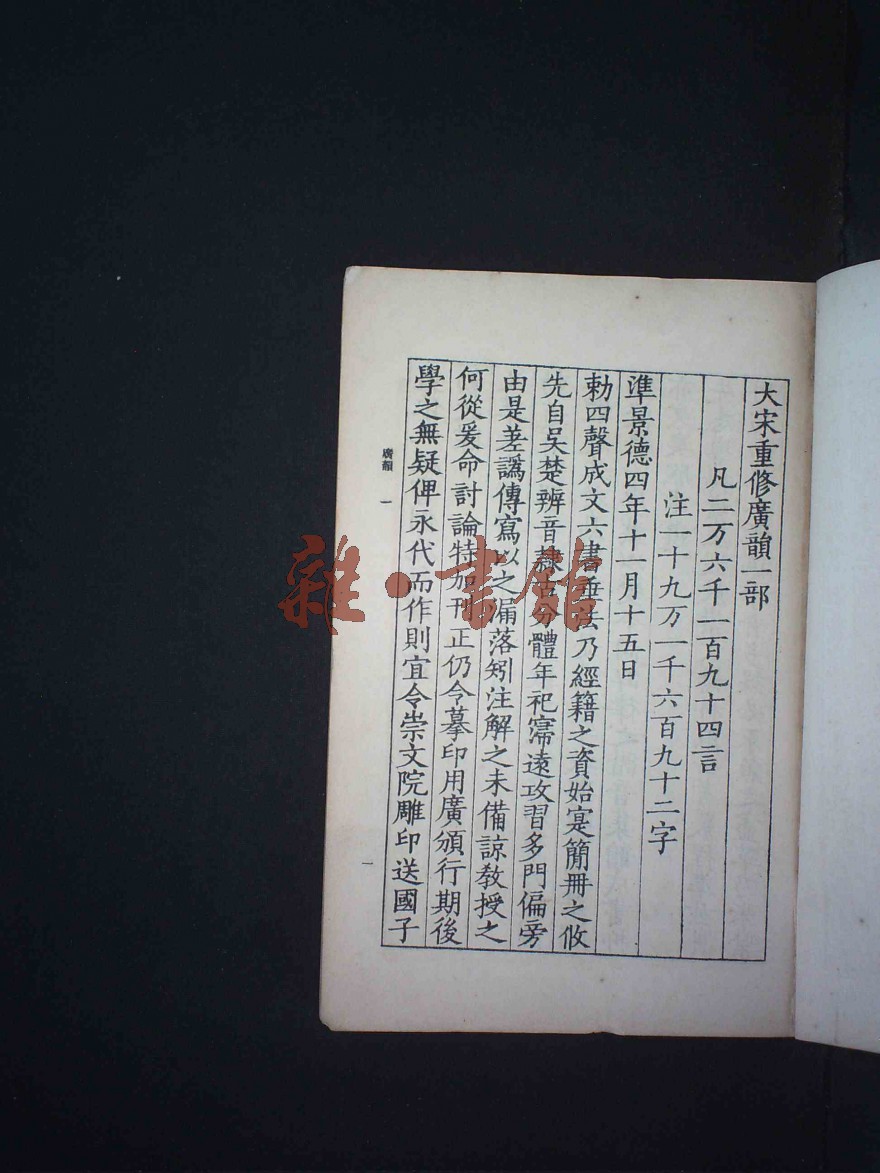 大宋重修廣韻一部
凡二万六千一百九十四言
注一十九万一千六百九十二字
準景德四年十一月十五日
勅四聲成文六書垂法乃經籍之資始寔簡冊之攸
先自吴楚辨音隸古分體年祀寖遠攻習多門偏旁
由是差譌傳寫以之漏落矧注解之未備諒教授之
何從爰命討論特加刊正仍令摹印用廣頒行期後
學之無疑俾永代而作則宜令崇文院雕印送國子
廣韻 一
一
雜·書館